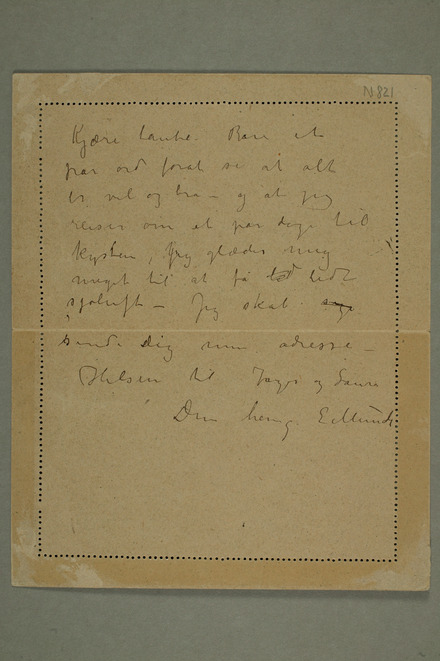 N 821
Kjære tante. Bare et
par ord forat si at alt
er vel og bra – og at jeg
reiser om et par dage til
kysten, jeg glæder mig
meget til at få lidt
sjøluft – Jeg skal
sende dig min adresse –
Hilsen til og
Din heng. E. Munch